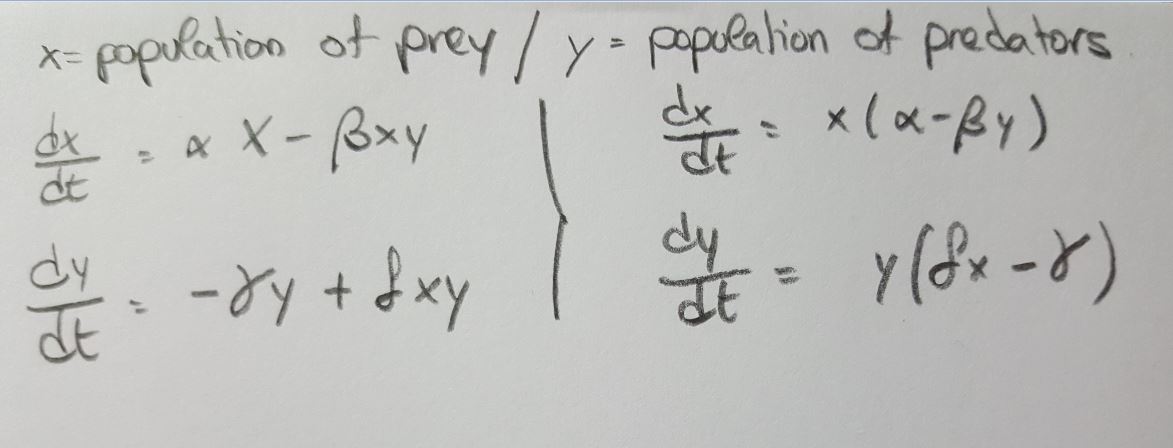 x = population of prey / y = population of predators
dx/dt = αx - βxy | dx/dt = x(α-βy)
dy/dt = -γy + δxy | dy/dt = y(δx-γ)